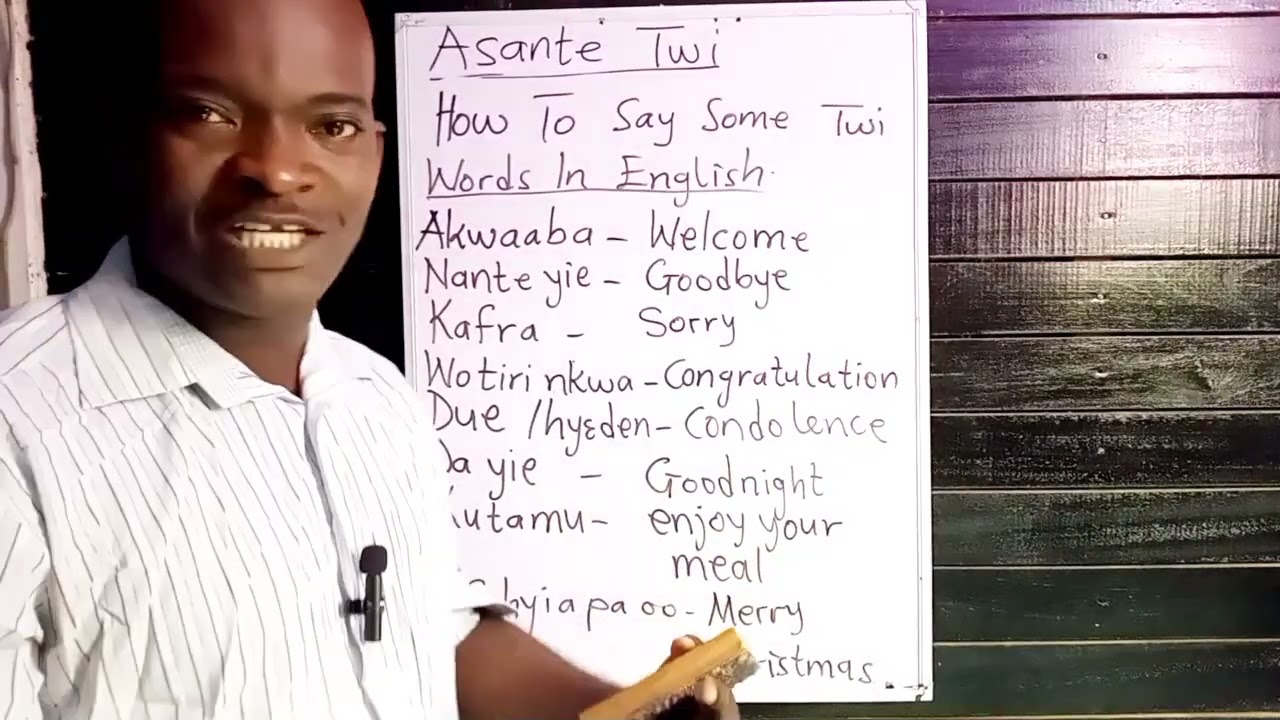 Asante Twi
How To Say Some Twi
Words In English.
Akwaaba - Welcome
Nante yie - Goodbye
Kafra - Sorry
Wotiri nkwa - Congratulation
Due /hyɛden - Condolence
yie - Goodnight
enjoy your
meal
Merry